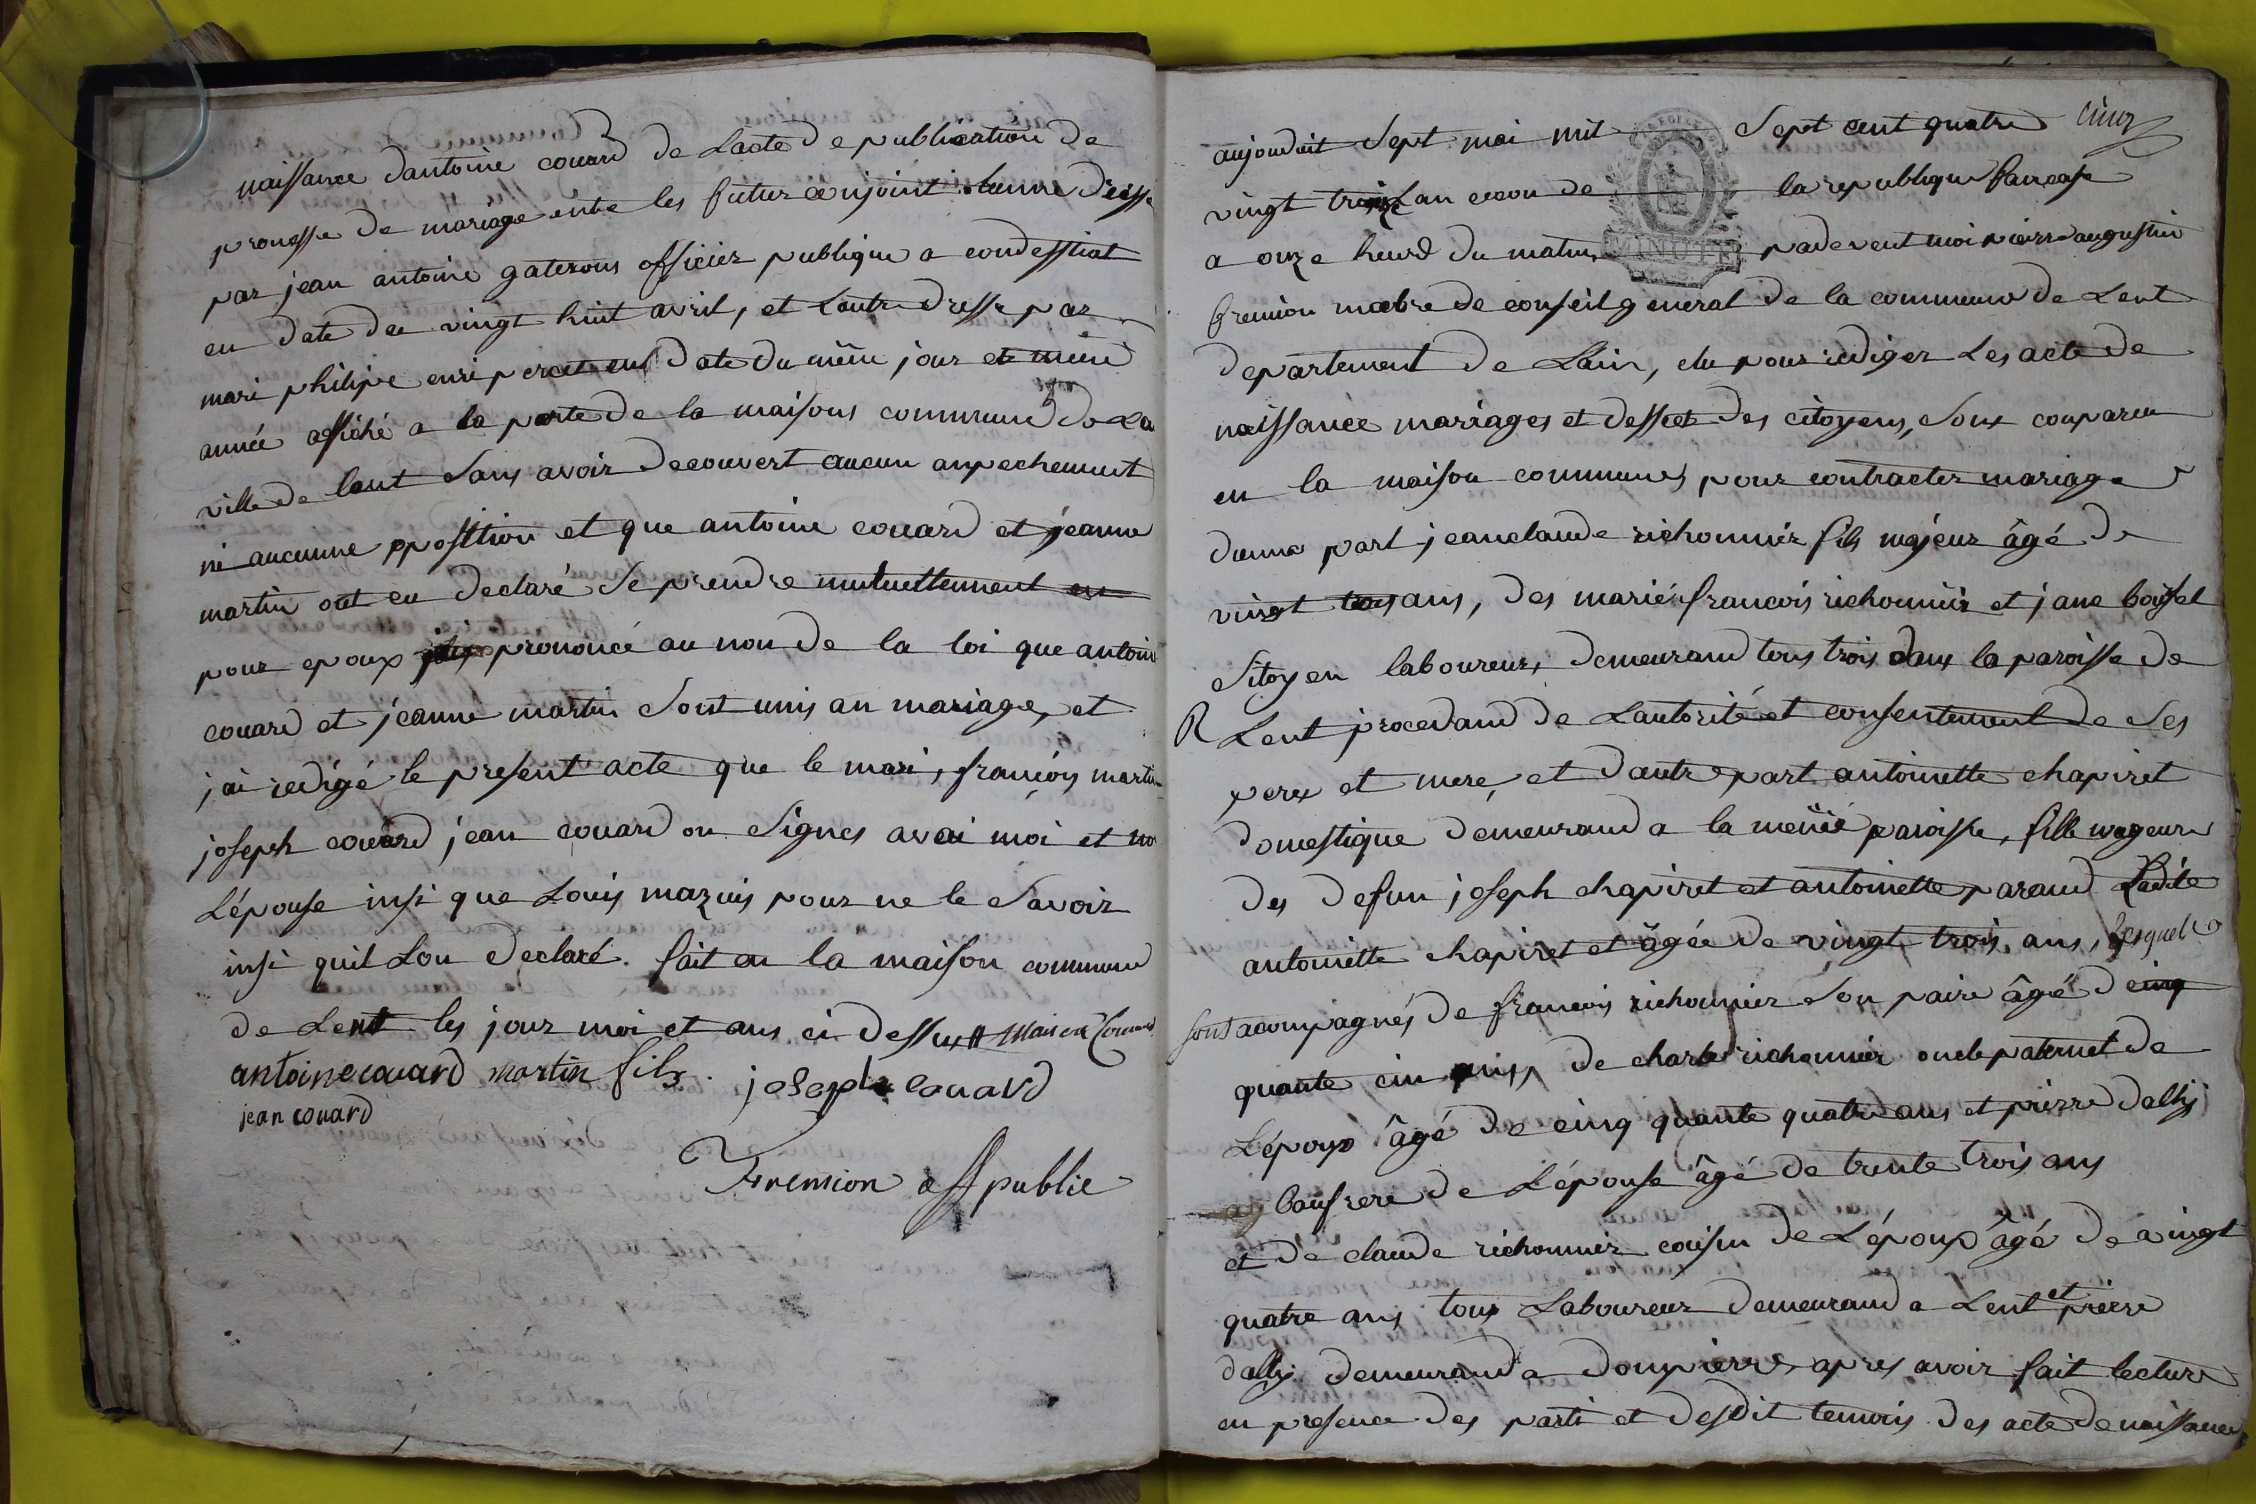 naissance dantoine couard de Lacte de publication de
promesse de mariage entre les futur conjoint lunne dresse
par jean antoine gaterous officier publique a condessiat
en date du vingt huit avril, et Loutre dresse par
mari philipe enri percet en date du même jour et même
année affiché a la porte de la maisons commune de La
ville de lent sans avoir decouvert aucun anpechement
ni aucunne opposition et que antoine couard et jeanne
martin ont eu declaré se prendre mutuellement en
pour epoux jai prononcé au non de la loi que antoine
couard et jeanne martin sont unis an mariage, et
jai redigé le present acte que le mari, francois martin
joseph couard jean couard on signes avai moi et no
L'épouse insi que Louis mazuis pour ne le savoir
insi quil Lon declaré. fait en la maison commune
de Lent les jour moi et ans ci dessus maison Commune
antoine couard martin fils. joseph couard
jean couard
Fremion off public
cinq
aujouduit sept mai mil sept cent quatre
vingt treize lan ceson de la republique francase
a onze heurd du matin, padevent moi pierre augustin
MINUTE
fremion mœbre de conseil general de la commune de Lent
departement de Lain, elu pour rediger Les acte de
naissance mariages et desset des citoyens, sont conparcu
en la maison commune, pour contracter mariage
dunne part jeanclaude richonnier fils majeur âgé de
vingt trois ans, des mariés francois richonnier et jane boisel
sitoyen laboureur, demeurand tous trois dans la paroisse de
R Lent procedand de Lautorité et consentement de ses
pere et mere, et dautre part antoinette chapiret
domestique demeurand a la même paroisse, fille mageure
des defun joseph chapiret et antoinette parand Ladite
antoinette chapiret et âgée de vingt trois ans, lesquels
sont acompagnés de francois richonnier son paire âgé de cinq
quante cin ans, de charle richonnier oncle paternel de
L'époux âgé de cinq quante quatre ans et pierre dally
baufrere de L'épouse âgé de trente trois ans
et de claude richonnier couisin de L'époux âgé de vingt
quatre ans tous Laboureur demeurand a Lent et pierre
dally demeurand a donpierre, apres avoir fait lecture
en presence des parti et desdit temois des acte de naissance